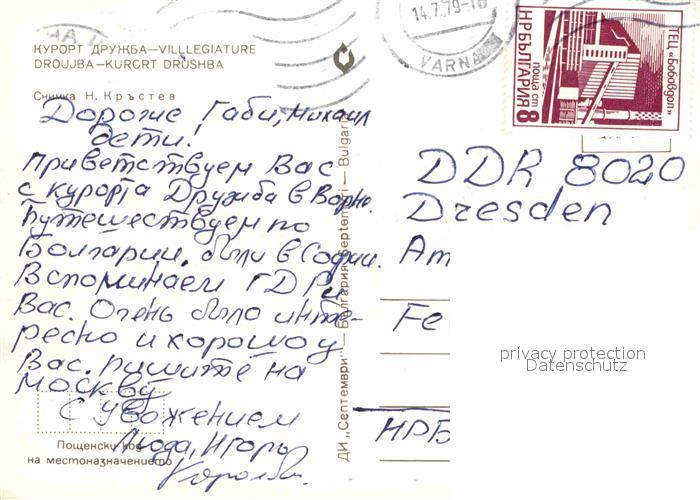 КУРОРТ ДРУЖБА—VILLLEGIATURE
DROUJBA—KURORT DRUSHBA
Снимка Н. Кръстев
14.7.79-16
VARNA
НР БЪЛГАРИЯ
поща ст 8
ТЕЦ „Бобовдол"
Дорогие Габи, Михаил
дети!
Приветствуем Вас
с курорта Дружба в Варне.
Путешествуем по
Болгарии, были в Софии.
Вспоминаем ГДР и
Вас. Очень было инте-
ресно и хорошо у
Вас. Пишите на
Москву
С уважением
Люда, Игорь
Королевы.
Пощенски код
на местоназначението
ДИ „Септември" — България Septemvri — Bulgaria
DDR 8020
Dresden
Am
Fe
НРБ
privacy protection
Datenschutz